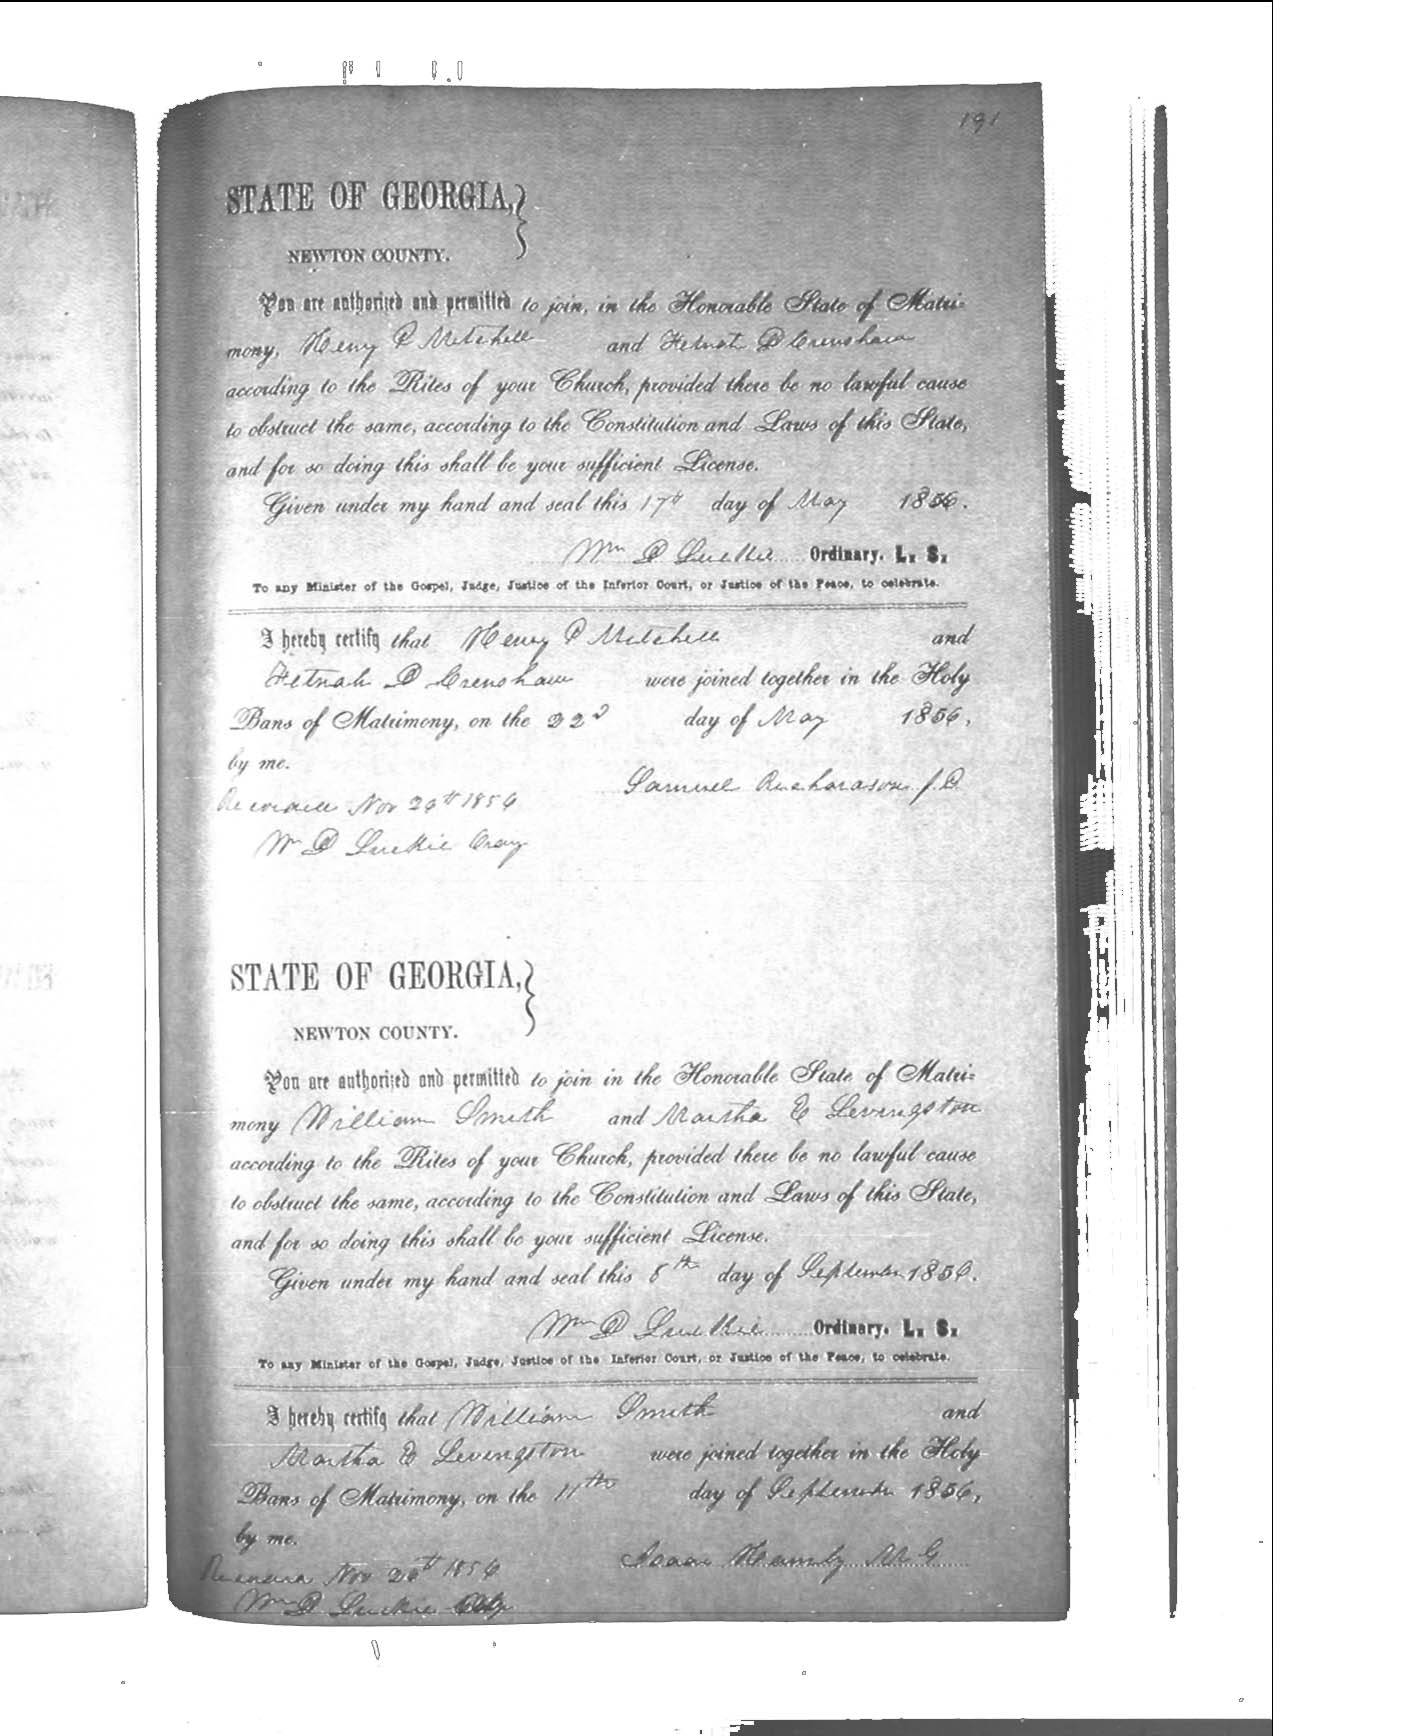 191
STATE OF GEORGIA,
NEWTON COUNTY.
You are authorized and permitted to join, in the Honorable State of Matri-
mony, Henry P Mitchell and D Crenshaw
according to the Rites of your Church, provided there be no lawful cause
to obstruct the same, according to the Constitution and Laws of this State,
and for so doing this shall be your sufficient License.
Given under my hand and seal this 17th day of May 1856.
Wm D Luckie Ordinary. L. S.
To any Minister of the Gospel, Judge, Justice of the Inferior Court, or Justice of the Peace, to celebrate.
I hereby certify that Henry P Mitchell and
D Crenshaw were joined together in the Holy
Bans of Matrimony, on the 22d day of May 1856,
by me.
Samuel Richardson J. P.
Recorded Nov 1856
Wm D Luckie Ordy
STATE OF GEORGIA,
NEWTON COUNTY.
You are authorized and permitted to join in the Honorable State of Matri-
mony William Smith and Martha E Levingston
according to the Rites of your Church, provided there be no lawful cause
to obstruct the same, according to the Constitution and Laws of this State,
and for so doing this shall be your sufficient License.
Given under my hand and seal this 8th day of September 1856.
Wm D Luckie Ordinary. L. S.
To any Minister of the Gospel, Judge, Justice of the Inferior Court, or Justice of the Peace, to celebrate.
I hereby certify that William Smith and
Martha E Levingston were joined together in the Holy
Bans of Matrimony, on the 11th day of September 1856,
by me.
Isaac Hamby M G
Recorded Nov 1856
Wm D Luckie Ordy